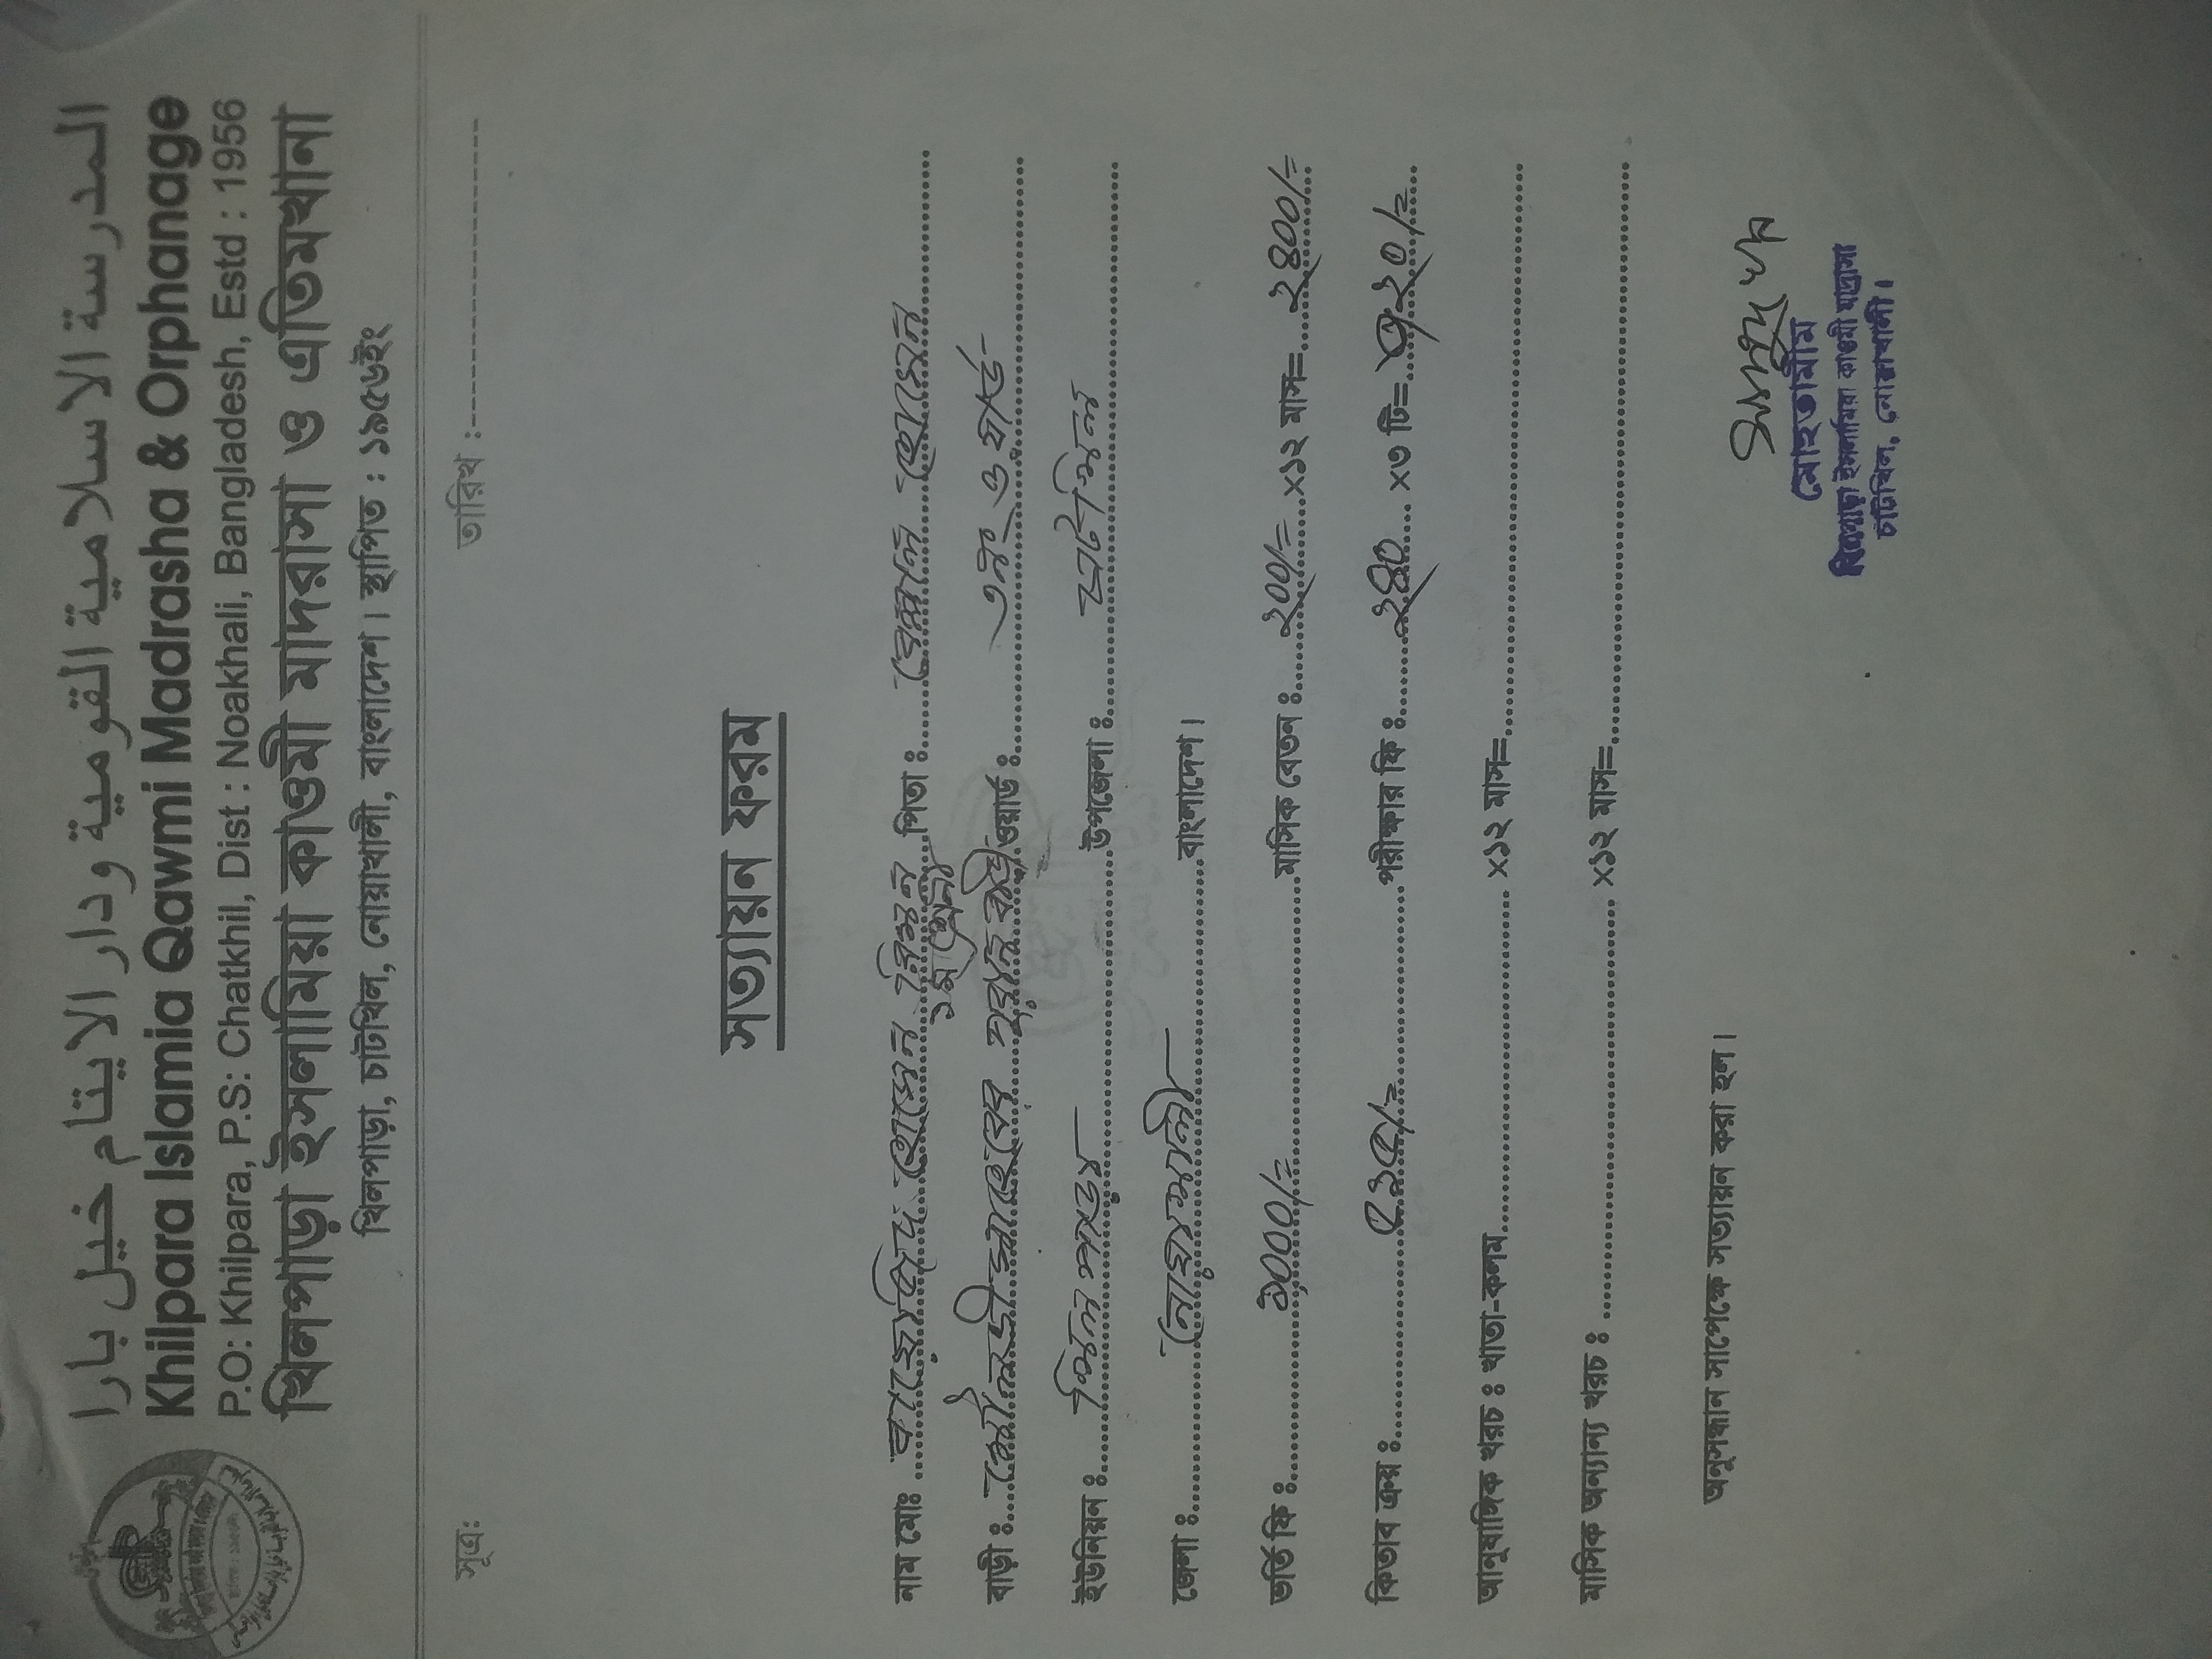 المدرسة الاسلامية القومية ودار الايتام خيل بارا
Khilpara Islamia Qawmi Madrasha & Orphanage
P.O: Khilpara, P.S: Chatkhil, Dist : Noakhali, Bangladesh, Estd : 1956
খিলপাড়া ইসলামিয়া কাওমী মাদরাসা ও এতিমখানা
খিলপাড়া, চাটখিল, নোয়াখালী, বাংলাদেশ। স্থাপিত : ১৯৫৬ইং
সূত্র: তারিখ :-------------------
সত্যায়ন ফরম
নাম মোঃ বায়েজিদ হোসেন রিমন পিতা : বেল্লাল হোসেন
১ম শ্রেনী
বাড়ী : মৌলভী সাহেবের পুরান বাড়ী ওয়ার্ড : ৩নং ওয়ার্ড
ইউনিয়ন : খিলপাড়া উপজেলা : চাটখিল
জেলা : নোয়াখালী বাংলাদেশ।
ভর্তি ফি : ১০০০/= মাসিক বেতন : ২০০/= ×১২ মাস= ২৪০০/=
কিতাব ক্রয় : পরীক্ষার ফি : ২৪০ ×৩ টি= ৭২০/=
আনুষাঙ্গিক খরচ : খাতা-কলম ×১২ মাস=
মাসিক অন্যান্য খরচ : ×১২ মাস=
অনুসন্ধান সাপেক্ষে সত্যায়ন করা হল।
মোহতামীম
খিলপাড়া ইসলামিয়া কাওমী মাদ্রাসা
চাটখিল, নোয়াখালী।